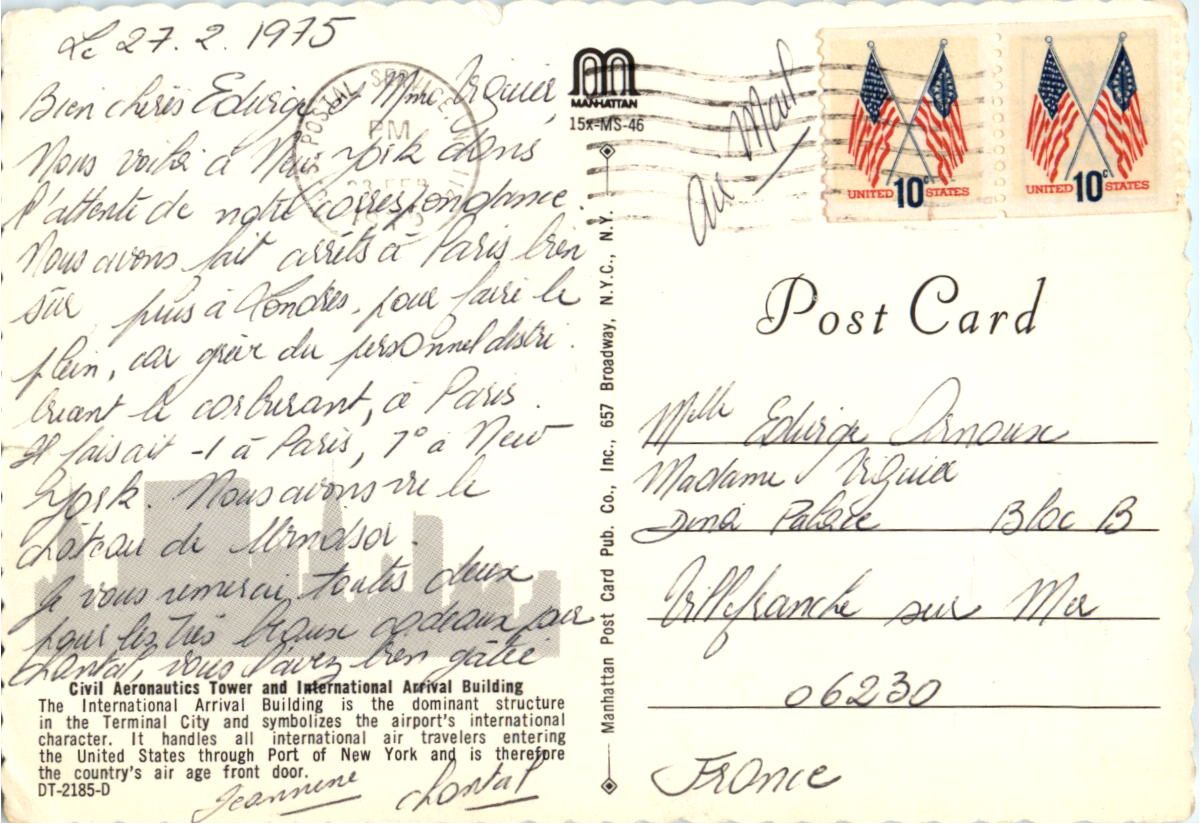 Le 27.2.1975
Bien chères Edwige et Mme Viguier,
Nous voilà à New York dans
l'attente de notre correspondance.
Nous avons fait arrêts à Paris bien
sûr puis à Londres, pour faire le
plein, car grève du personnel distri-
buant le carburant, à Paris.
Il faisait -1 à Paris, 7° à New
York. Nous avons vu le
château de Windsor.
Je vous remercie toutes deux
pour les très beaux cadeaux pour
Chantal, vous l'avez bien gâtée
Jeannine Chantal
Civil Aeronautics Tower and International Arrival Building
The International Arrival Building is the dominant structure
in the Terminal City and symbolizes the airport's international
character. It handles all international air travelers entering
the United States through Port of New York and is therefore
the country's air age front door.
DT-2185-D
MANHATTAN
15x-MS-46
Manhattan Post Card Pub. Co., Inc., 657 Broadway, N.Y.C., N.Y.
POSTAL SERVICE
PM
FEB
air Mail
UNITED 10c STATES
UNITED 10c STATES
Post Card
Melle Edwige Arnoux
Madame Viguier
Dina Palace Bloc B
Villefranche sur Mer
06230
France